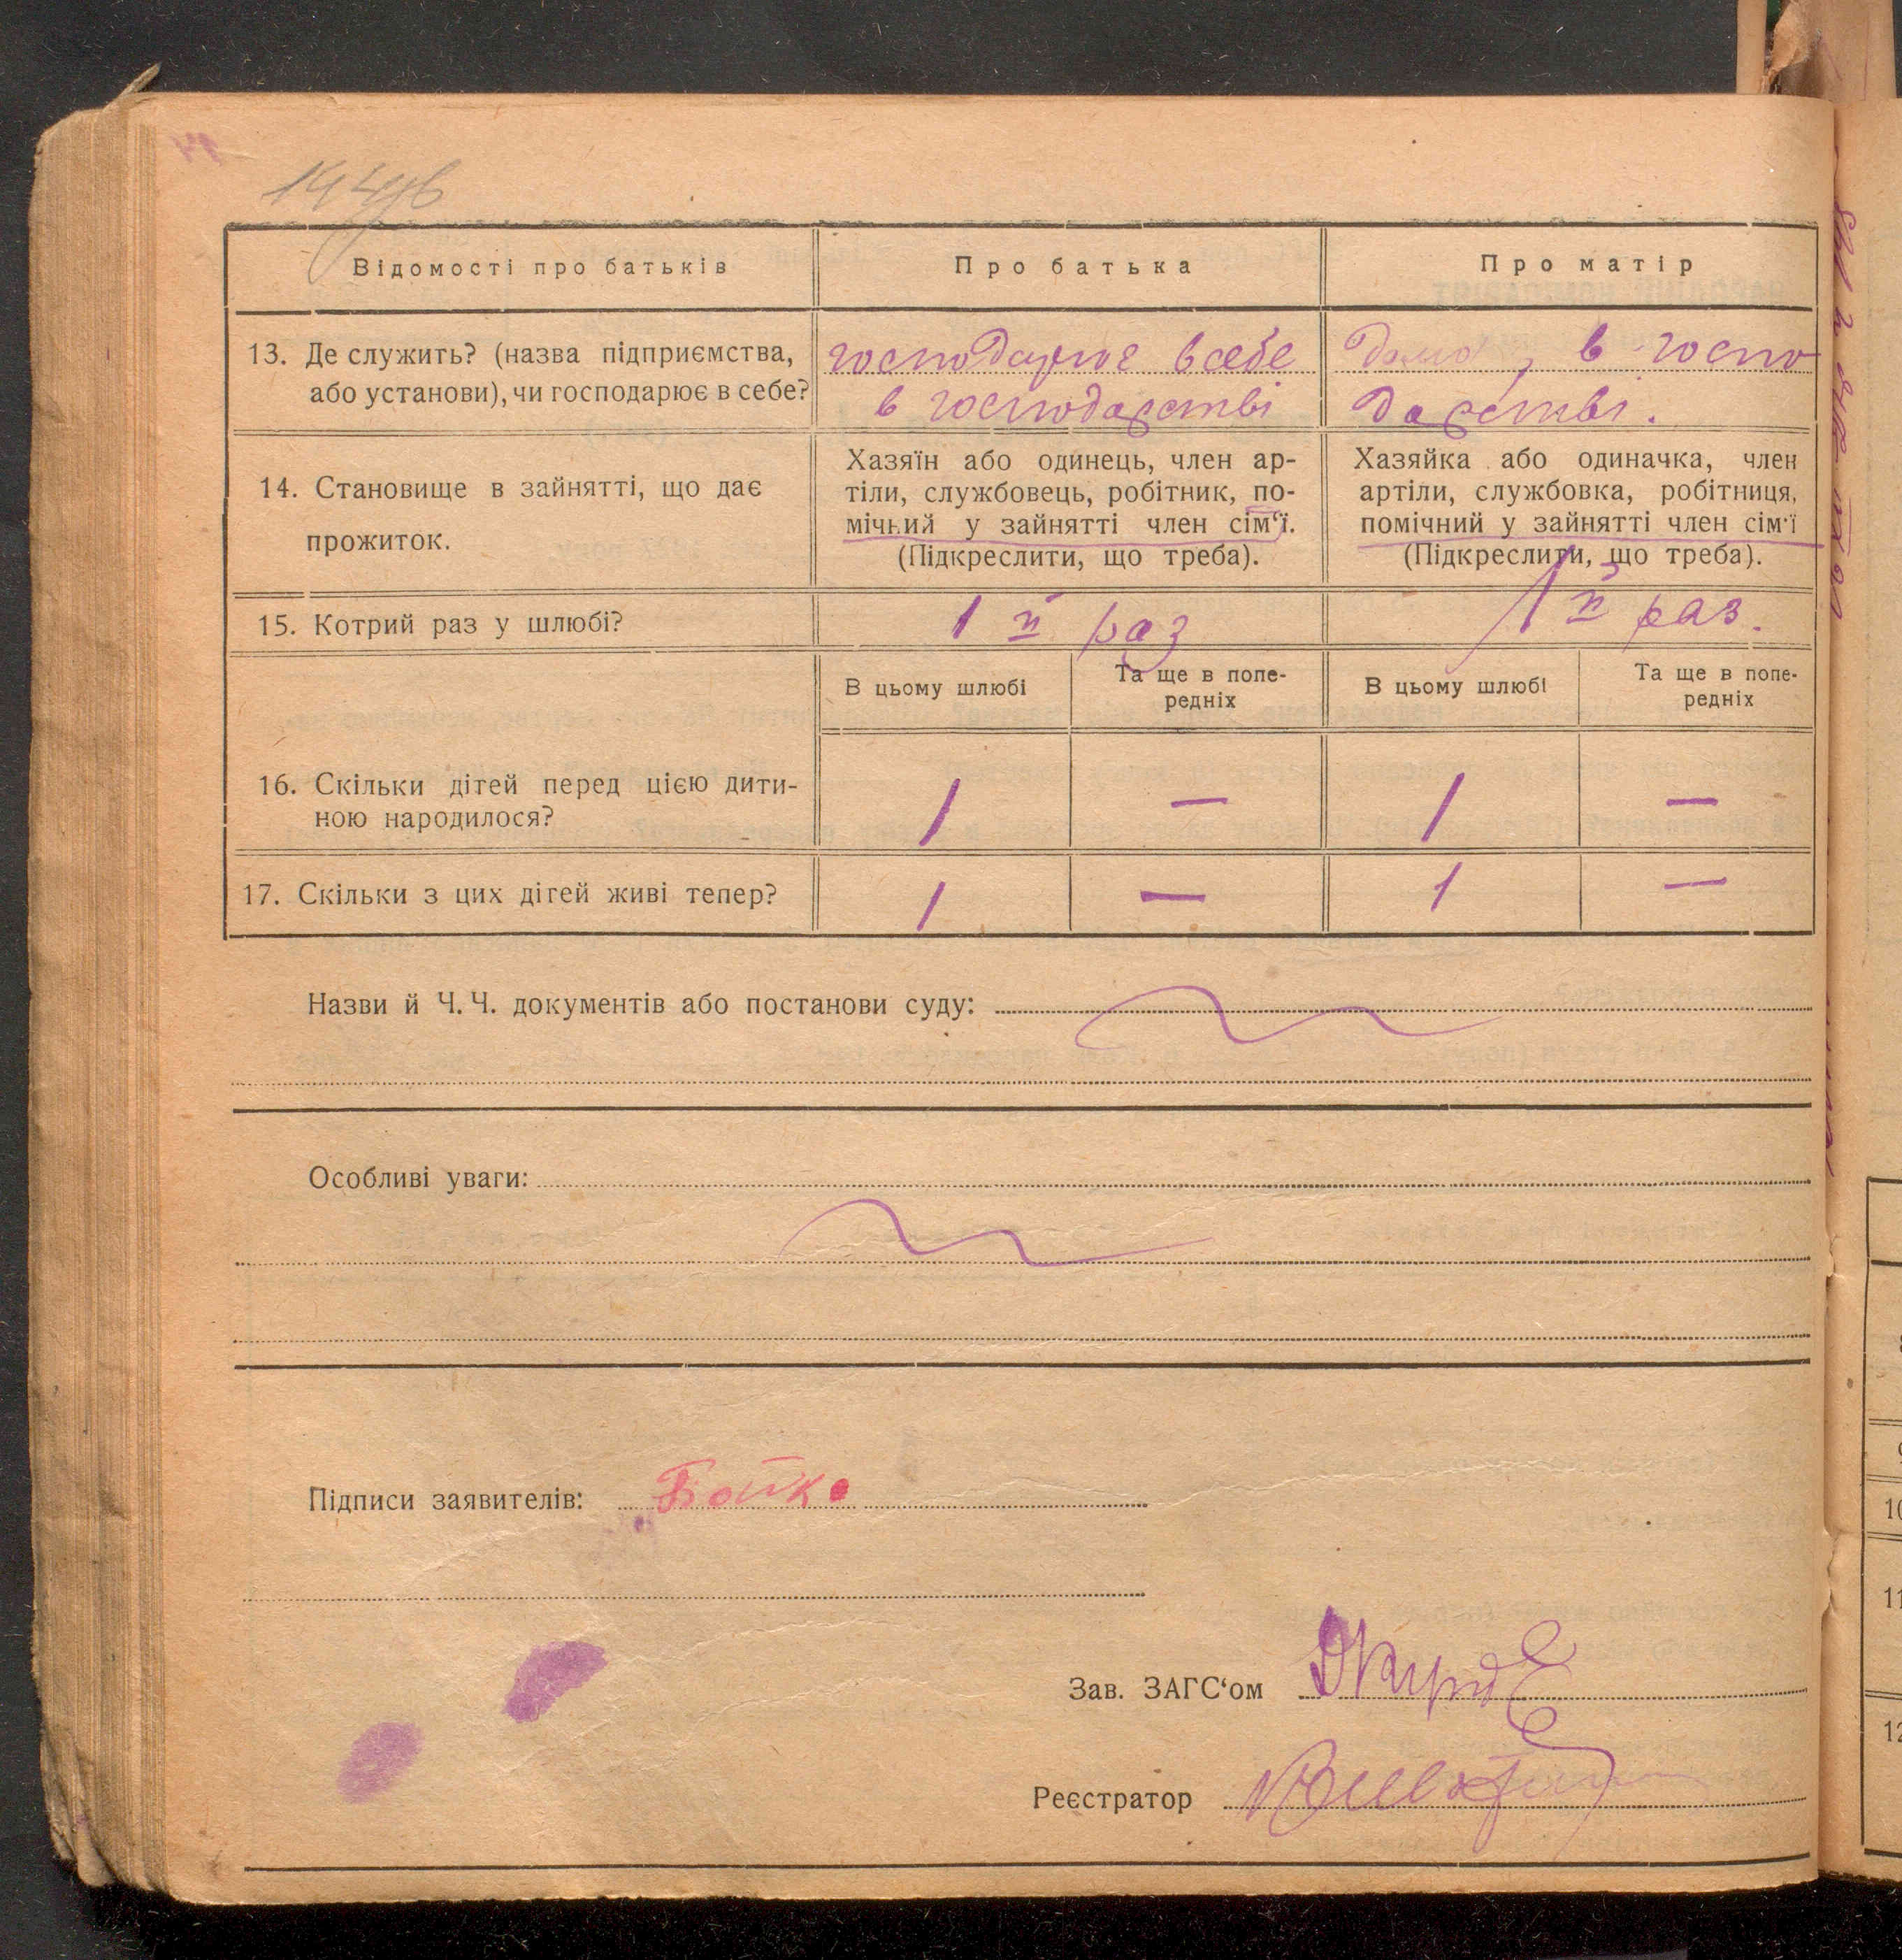 144зв
Відомості про батьків
Про батька
Про матір
13. Де служить? (назва підприємства,
або установи), чи господарює в себе?
господарює в себе
в господарстві
дома, в госпо
дарстві.
14. Становище в зайнятті, що дає
прожиток.
Хазяїн або одинець, член ар-
тіли, службовець, робітник, по-
мічний у зайнятті член сім‘ї.
(Підкреслити, що треба).
Хазяйка або одиначка, член
артіли, службовка, робітниця,
помічний у зайнятті член сім‘ї
(Підкреслити, що треба).
15. Котрий раз у шлюбі?
1й раз
1й раз.
В цьому шлюбі
Та ще в попе-
редніх
В цьому шлюбі
Та ще в попе-
редніх
16. Скільки дітей перед цією дити-
ною народилося?
1
—
1
—
17. Скільки з цих дітей живі тепер?
1
—
1
—
Назви й Ч. Ч. документів або постанови суду:
Особливі уваги:
Підписи заявителів: Бойко
Зав. ЗАГС‘ом
Реєстратор
10
11
12